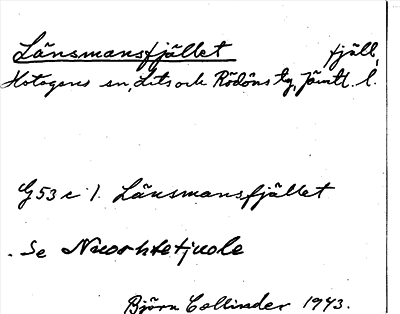 Länsmansfjället fjäll,
Hotagens sn, Lits och Rödöns tg, Jämtl. l.
G 53 c 1. Länsmansfjället
. Se Nuorhtetjuole
Björn Collinder 1943.